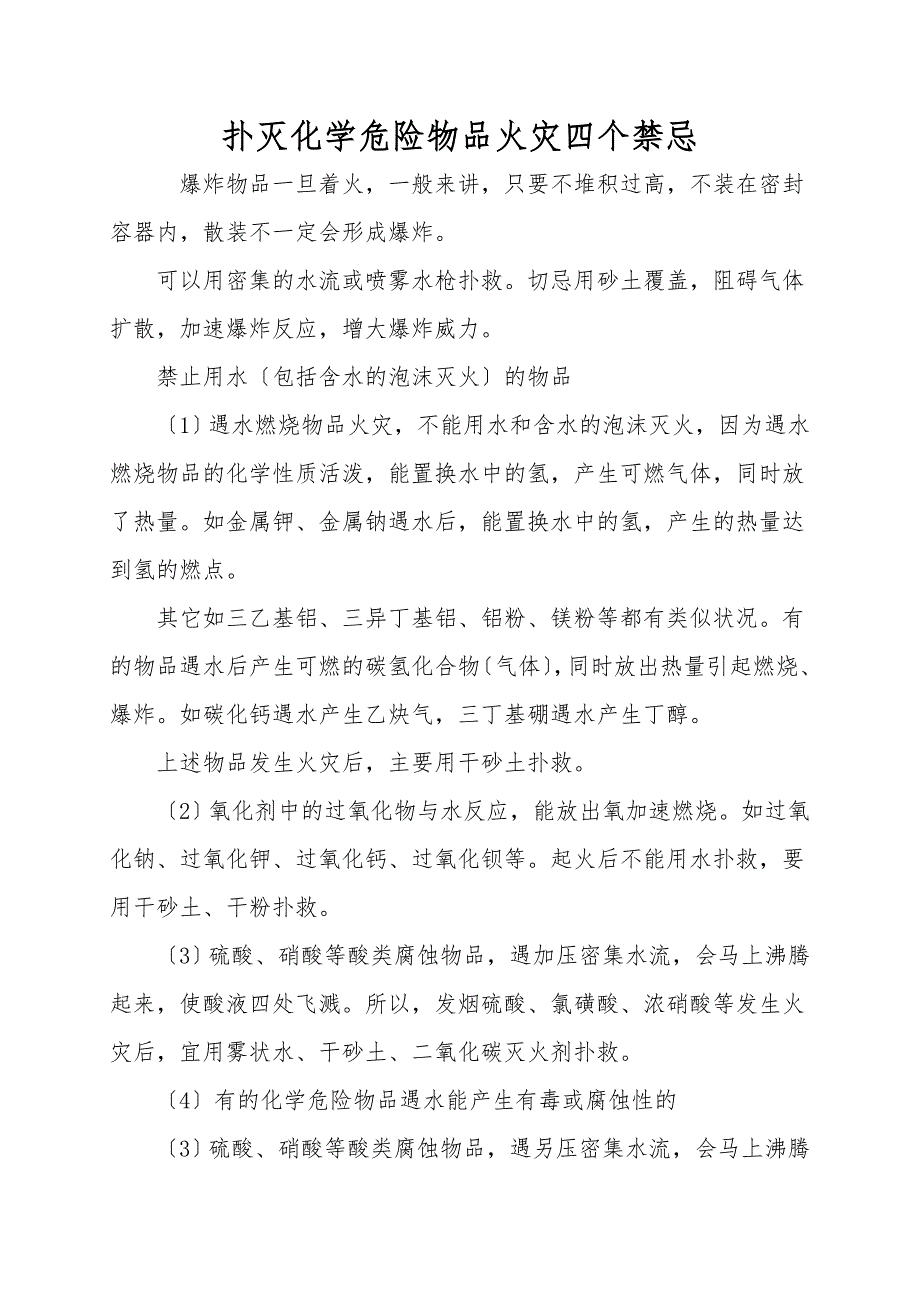 扑灭化学危险物品火灾四个禁忌
爆炸物品一旦着火，一般来讲，只要不堆积过高，不装在密封
容器内，散装不一定会形成爆炸。
可以用密集的水流或喷雾水枪扑救。切忌用砂土覆盖，阻碍气体
扩散，加速爆炸反应，增大爆炸威力。
禁止用水〔包括含水的泡沫灭火〕的物品
〔1〕遇水燃烧物品火灾，不能用水和含水的泡沫灭火，因为遇水
燃烧物品的化学性质活泼，能置换水中的氢，产生可燃气体，同时放
了热量。如金属钾、金属钠遇水后，能置换水中的氢，产生的热量达
到氢的燃点。
其它如三乙基铝、三异丁基铝、铝粉、镁粉等都有类似状况。有
的物品遇水后产生可燃的碳氢化合物〔气体〕，同时放出热量引起燃烧、
爆炸。如碳化钙遇水产生乙炔气，三丁基硼遇水产生丁醇。
上述物品发生火灾后，主要用干砂土扑救。
〔2〕氧化剂中的过氧化物与水反应，能放出氧加速燃烧。如过氧
化钠、过氧化钾、过氧化钙、过氧化钡等。起火后不能用水扑救，要
用干砂土、干粉扑救。
〔3〕硫酸、硝酸等酸类腐蚀物品，遇加压密集水流，会马上沸腾
起来，使酸液四处飞溅。所以，发烟硫酸、氯磺酸、浓硝酸等发生火
灾后，宜用雾状水、干砂土、二氧化碳灭火剂扑救。
〔4〕有的化学危险物品遇水能产生有毒或腐蚀性的
〔3〕硫酸、硝酸等酸类腐蚀物品，遇另压密集水流，会马上沸腾